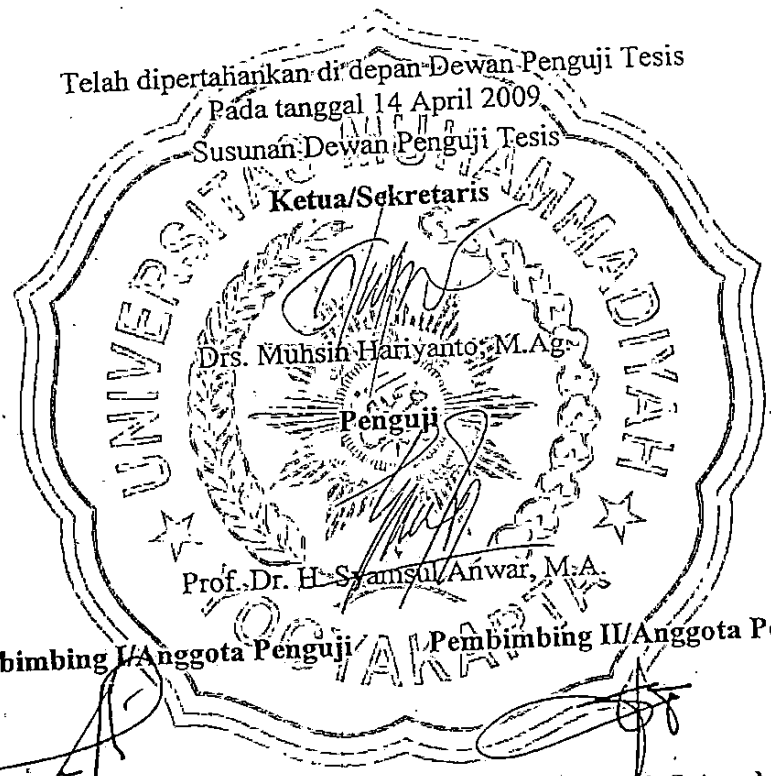 Telah dipertahankan di depan Dewan Penguji Tesis
Pada tanggal 14 April 2009
Susunan Dewan Penguji Tesis
Ketua/Sekretaris
Drs. Muhsin Hariyanto, M.Ag.
Penguji
Prof. Dr. H. Syamsul Anwar, M.A.
bimbing I/Anggota Penguji Pembimbing II/Anggota Pe
UNIVERSITAS MUHAMMADIYAH
YOGYAKARTA